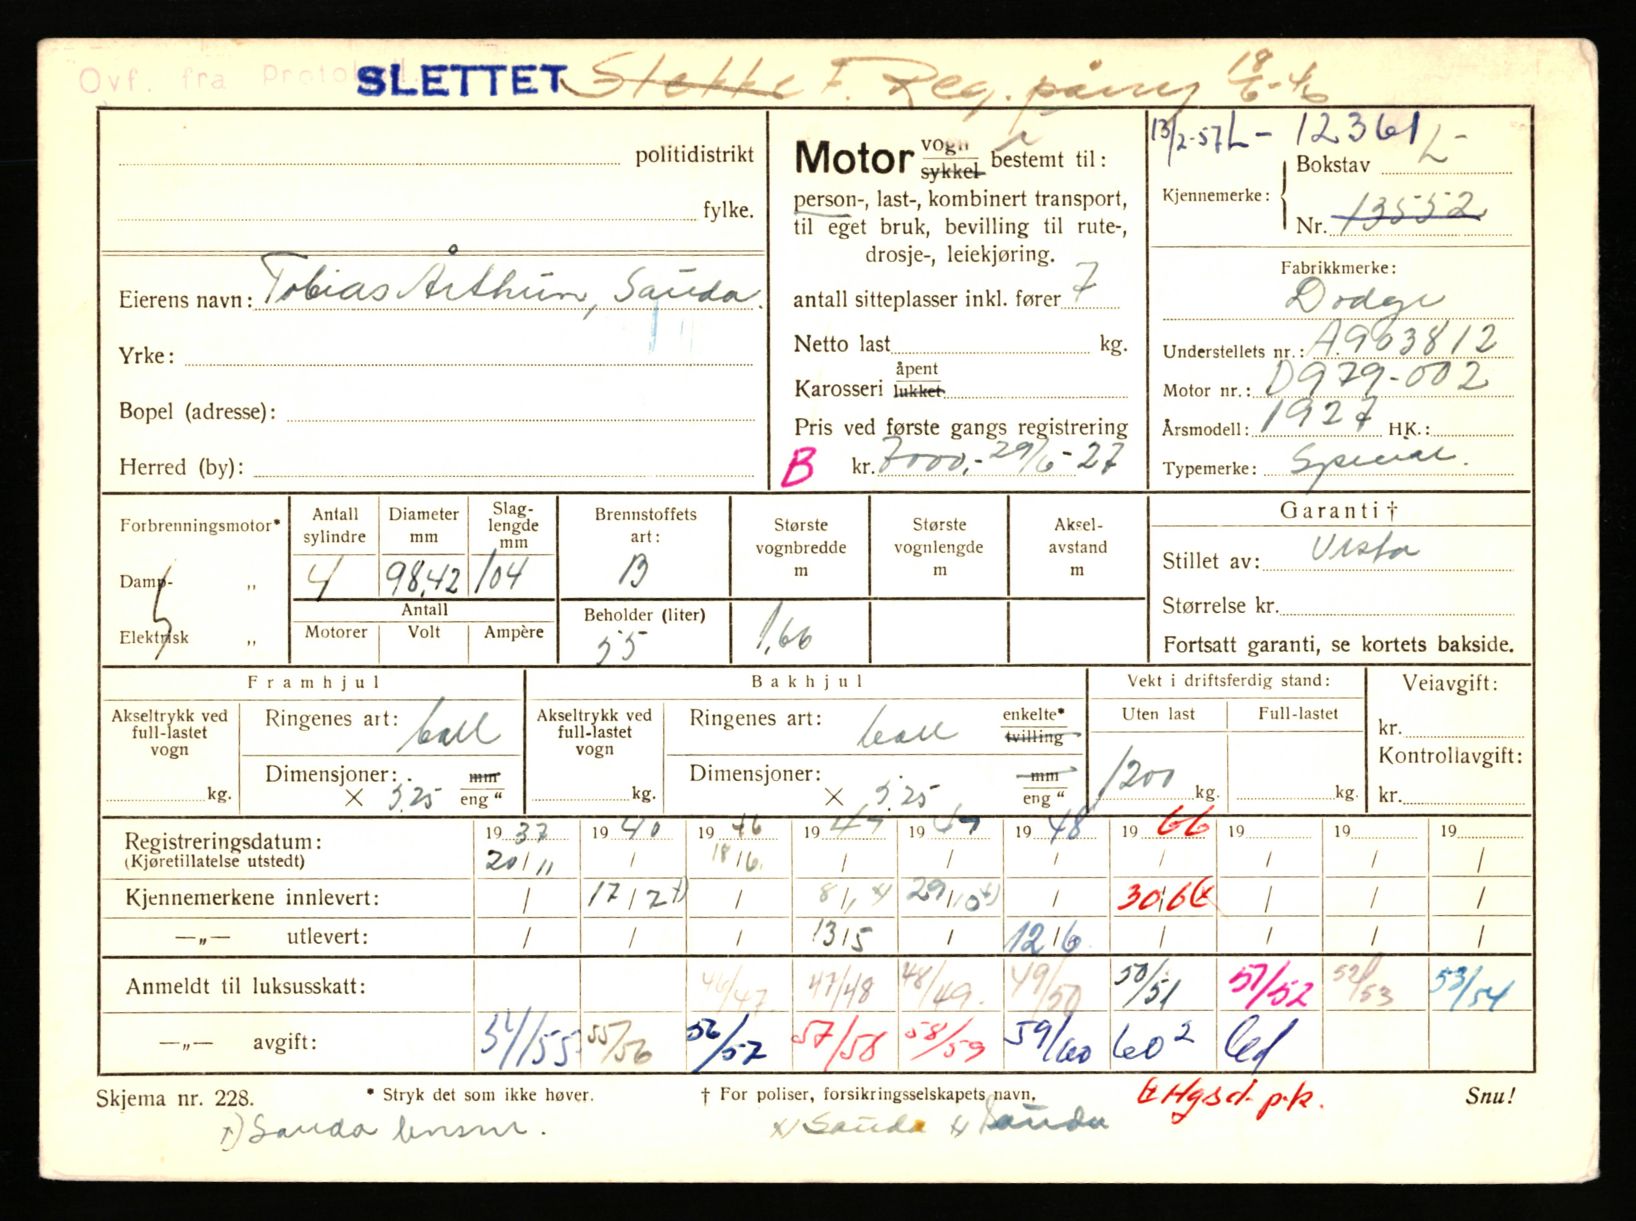 Ovf. fra Protokoll SLETTET Slettet F. Reg. påny 18/6-46
politidistrikt
fylke.
Eierens navn: Tobias Århun, Sauda.
Yrke:
Bopel (adresse):
Herred (by):
Motor vogn sykkel bestemt til:
person-, last-, kombinert transport,
til eget bruk, bevilling til rute-,
drosje-, leiekjøring.
antall sitteplasser inkl. fører 7
Netto last kg.
Karosseri åpent lukket
Pris ved første gangs registrering
B kr. 7000,- 29/6-27
13/2-57 L- 12361
Kjennemerke: Bokstav L-
Nr. 13552
Fabrikkmerke:
Dodge
Understellets nr.: A963812
Motor nr.: D979-002
Årsmodell: 1927 HK.:
Typemerke: Special.
Forbrenningsmotor*
Damp- „
Elektrisk „
Antall sylindre
Diameter mm
Slag-lengde mm
4 98,42 104
Antall
Motorer Volt Ampère
Brennstoffets art:
B
Beholder (liter)
55
Største vognbredde m
1,66
Største vognlengde m
Aksel-avstand m
Garanti †
Stillet av: Vesta
Størrelse kr.
Fortsatt garanti, se kortets bakside.
Framhjul
Akseltrykk ved full-lastet vogn
kg.
Ringenes art: ball
Dimensjoner: mm
× 5.25 eng "
Bakhjul
Akseltrykk ved full-lastet vogn
kg.
Ringenes art: ball enkelte* tvilling
Dimensjoner: mm
× 5.25 eng "
Vekt i driftsferdig stand:
Uten last Full-lastet
1200 kg. kg.
Veiavgift:
kr.
Kontrollavgift:
kr.
Registreringsdatum: 1937 1940 1946 1947 1947 1948 1966 19 19 19
(Kjøretillatelse utstedt) 20/11 / 18/6. / / / / / / /
Kjennemerkene innlevert: / 17/2 †) / 8/1 x) 29/10 x) / 30/6 / / /
—„— utlevert: / / / 13/5 / 12/6. / / / /
Anmeldt til luksusskatt: 46/47 47/48 48/49. 49/50 50/51 51/52 52/53 53/54
—„— avgift: 54/55 55/56 56/57 57/58 58/59 59/60 60² 61
Skjema nr. 228. * Stryk det som ikke høver. † For poliser, forsikringsselskapets navn. Hgsd. p.k. Snu!
†) Sauda lensm. x) Sauda x) Sauda